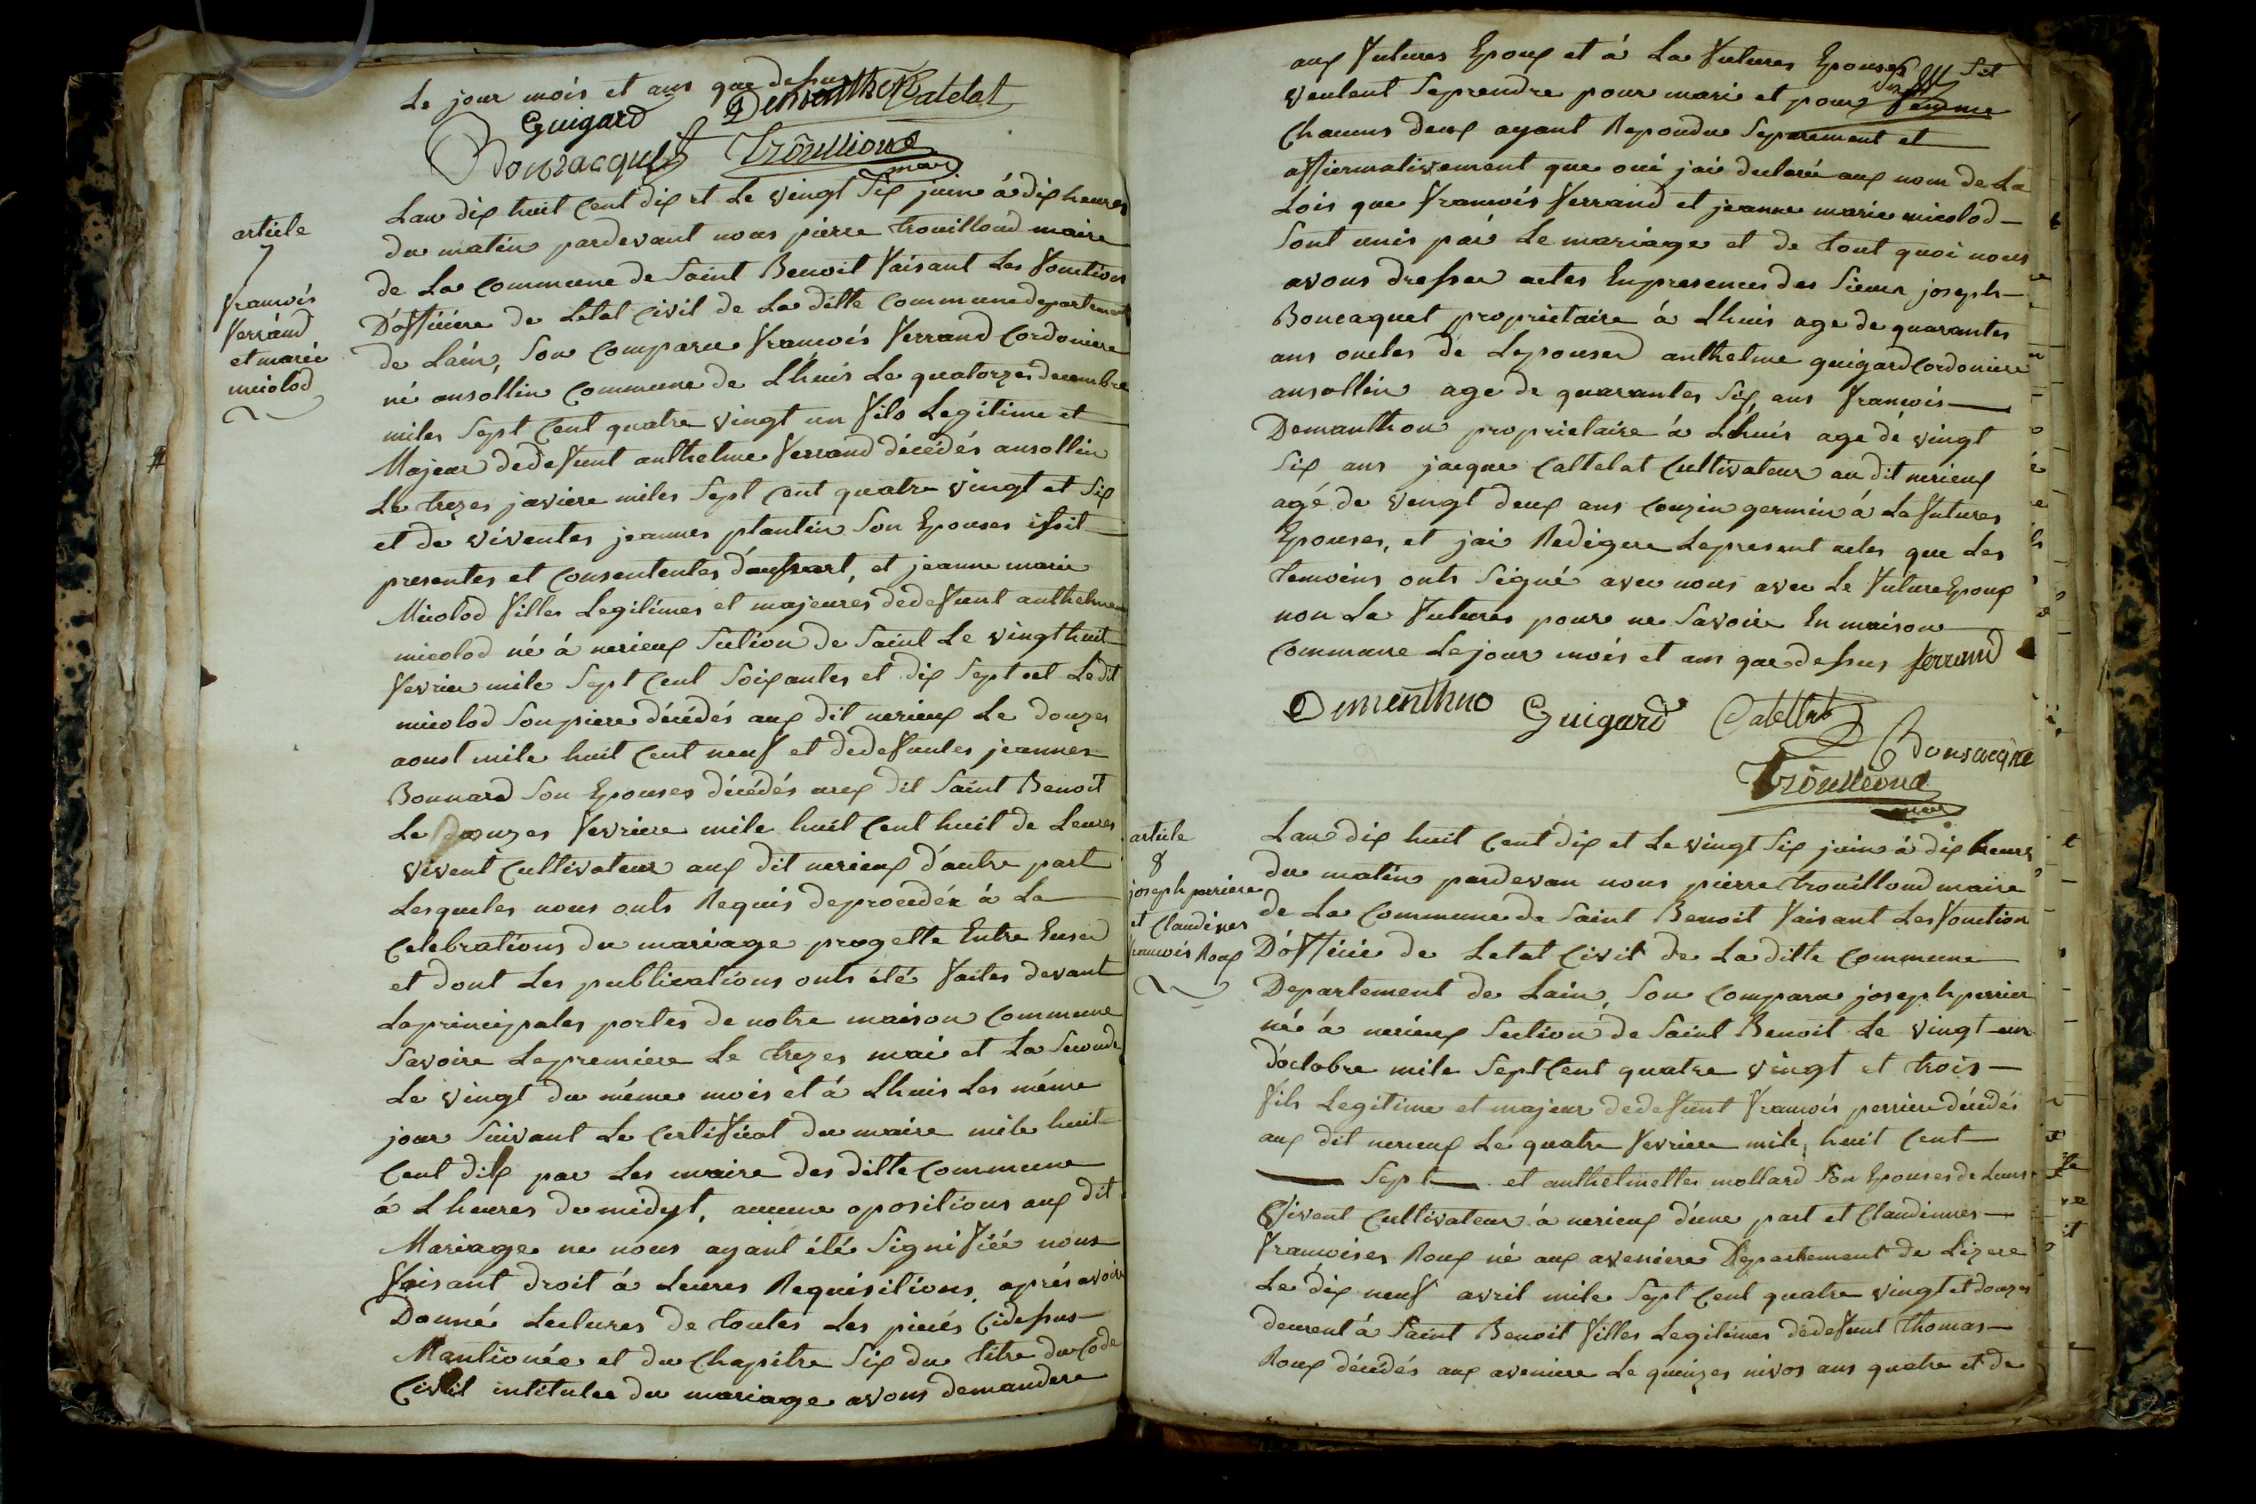 Le jour mois et ans que dessus
Guigard Dementhon Catelat
Trouilloud
maire
article
7
francois
ferrand
et marie
micolod
Lan dix huit Cent dix et Le vingt Six juin à dix heures
du matin pardevant nous pierre trouilloud maire
de La Commune de Saint Benoit faisant Les fonctions
D'officiere de Letat Civil de La ditte Commune departement
de Lain, Son Comparu francois ferrand Cordoniere
né ansollin Commune de Lhuis Le quatorzes decembre
miles Sept Cent quatre vingt un fils Legitime et
Majeur dedefunt anthelme ferrand décédés ansollin
Le trezes javiere miles Sept Cent quatre vingt et Six
et de viventes jeannes plantin Son Epouses issit
presentes et Consententes d'aupart, et jeanne marie
Micolod filles Legitimes et majeures dedefunt anthelme
micolod né à nerieux Section de Saint Le vingt huit
fevrier mile Sept Cent Soixantes et dix Sept et Le dit
micolod Son piere décédés aux dit nerieux Le douzes
aoust mile huit Cent neuf et dedefuntes jeannes
Bonnard Son Epouses décédés aux dit Saint Benoit
Le douzes fevriere mile huit Cent huit de Leures
vivent Cultivateur aux dit nerieux d'autre part
Lesqueles nous onts Requis deproceder à La
Celebrations du mariage progette Entre Eux
et dont Les publications onts été faites devant
Laprincipales portes de notre maison Commune
Savoire Lapremiere Le trezes mai et La Seconde
Le vingt du méme mois et à Lhuis Les méme
jour Suivant Le Certificat du maire mile huit
Cent dix par Les maire des ditte Commune
à Lheures du midyt, aucune opositions aux dit
Mariage ne nous ayant été Signifiée nous
faisant droit à Leures Requisitions, aprés avoir
Donné Lectures de toutes Les piecés Cidessus
Mantionée et du Chapitre Six du titre du Code
Civil intitulee du mariage avons demandere
aux futures Epoux et à La futures Epouses Sil
veulent Seprendre pour mari et pour femme
Chacuns deux ayant Repondu Separement et
affiermativement que oui jai declaré aux nom de La
Lois que francois ferrand et jeanne marie micolod
Sont unis par Le mariage et de tout quoi nous
avons dresser actes Enpresences des Sieur joseph
Boucaquet proprietaire à Lhuis age de quarantes
ans oncles de Lepouser anthelme guigard Cordoniere
ansollin age de quarantes Six, ans francois
Demanthon proprietaire à Lhuis age dé vingt
Six ans jacque Cattelat Cultivateur au dit nerieux
agé de vingt deux ans Couzin germin à Lafutures
Epouses, et jai Redigere Lepresent actes que Les
temoins onts Signé avec nous avec Le future Epoux
non La futures pour ne Savoire En maison
Commune Lejour mois et ans que dessus ferrand
Dementhno Guigard Catellat
Trouilloud
maire
article
8
joseph perriere
et Claudines
francois Roux
Lan dix huit Cent dix et Le vingt Six juin à dix heures
du matin pardevan nous pierre trouilloud maire
de La Commune de Saint Benoit faisant Les fonction
D'officié de Letat Civil de La ditte Commune
Departement de Lain, Son Comparu joseph perrier
né à nerieux Section de Saint Benoit Le vingt un
d'octobre mile Sept Cent quatre vingt et trois
fils Legitime et majeur dedefunt francois perriere décédés
aux dit nerieux Le quatre fevriere mile, huit Cent
Sept et anthelmettes mollard Son Epouses de Leurs
vivent Cultivateur à nerieux d'une part et Claudinnes
francoises Roux né aux aveniere Departement de Lizere
Le dix neuf avril mile Sept Cent quatre vingt et douzes
demeurent à Saint Benoit filles Legitimes dedefunt thomas
Roux décédés aux aveniere Le quinzes nivos ans quatre et de